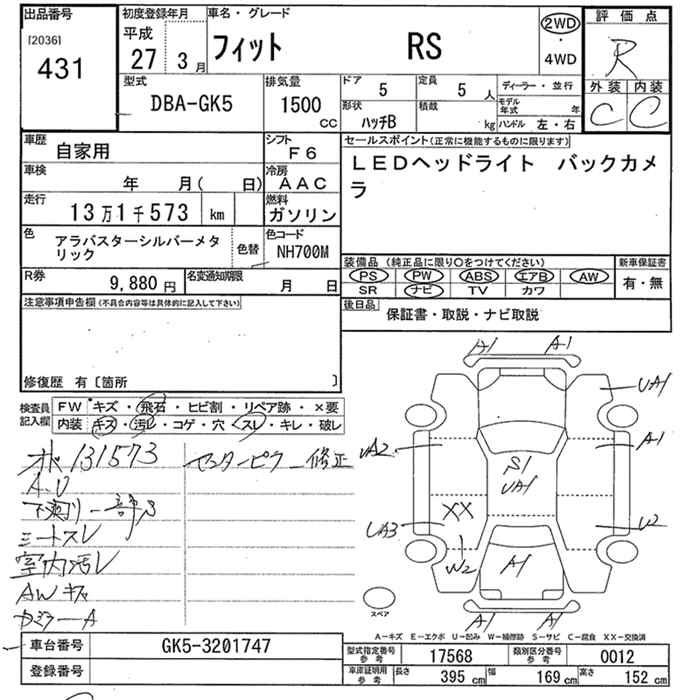 出品番号
[2036]
431
初度登録年月
平成
27 3月
車名・グレード
フィット RS
2WD
・
4WD
評価点
R
外装 内装
C C
型式
DBA-GK5
排気量
1500
CC
ドア
5
定員
5 人
形状
ハッチB
積載
kg
ディーラー・並行
モデル年式
年
ハンドル 左・右
車歴
自家用
シフト
F6
車検
年 月( 日)
冷房
AAC
走行
13万1千573 km
燃料
ガソリン
色
アラバスターシルバーメタ
リック
色替
色コード
NH700M
R券
9,880円
名変通知期限
月 日
セールスポイント(正常に機能するものに限ります)
LEDヘッドライト バックカメ
ラ
装備品 (純正品に限り○をつけてください)
PS PW ABS エアB AW
SR ナビ TV カワ
新車保証書
有・無
後日品
保証書・取説・ナビ取説
注意事項申告欄(不具合内容等は具体的に記入して下さい)
修復歴 有〔箇所 〕
検査員
記入欄
FW キズ・飛石・ヒビ割・リペア跡・×要
内装 キズ・汚レ・コゲ・穴・スレ・キレ・破レ
ホ 131573
センターピラー修正
シートスレ
室内汚レ
AWキズ
カジラーA
A1 A1
UA1
UA2
A1
S1
UA1
XX
UA3
U2
W2
A1
A1 A1
スペア
A-キズ E-エクボ U-凹み W-補修跡 S-サビ C-腐食 XX-交換済
車台番号
GK5-3201747
登録番号
型式指定番号
参考
17568
類別区分番号
参考
0012
車庫証明用
参考
長さ
395 cm
幅
169 cm
高さ
152 cm